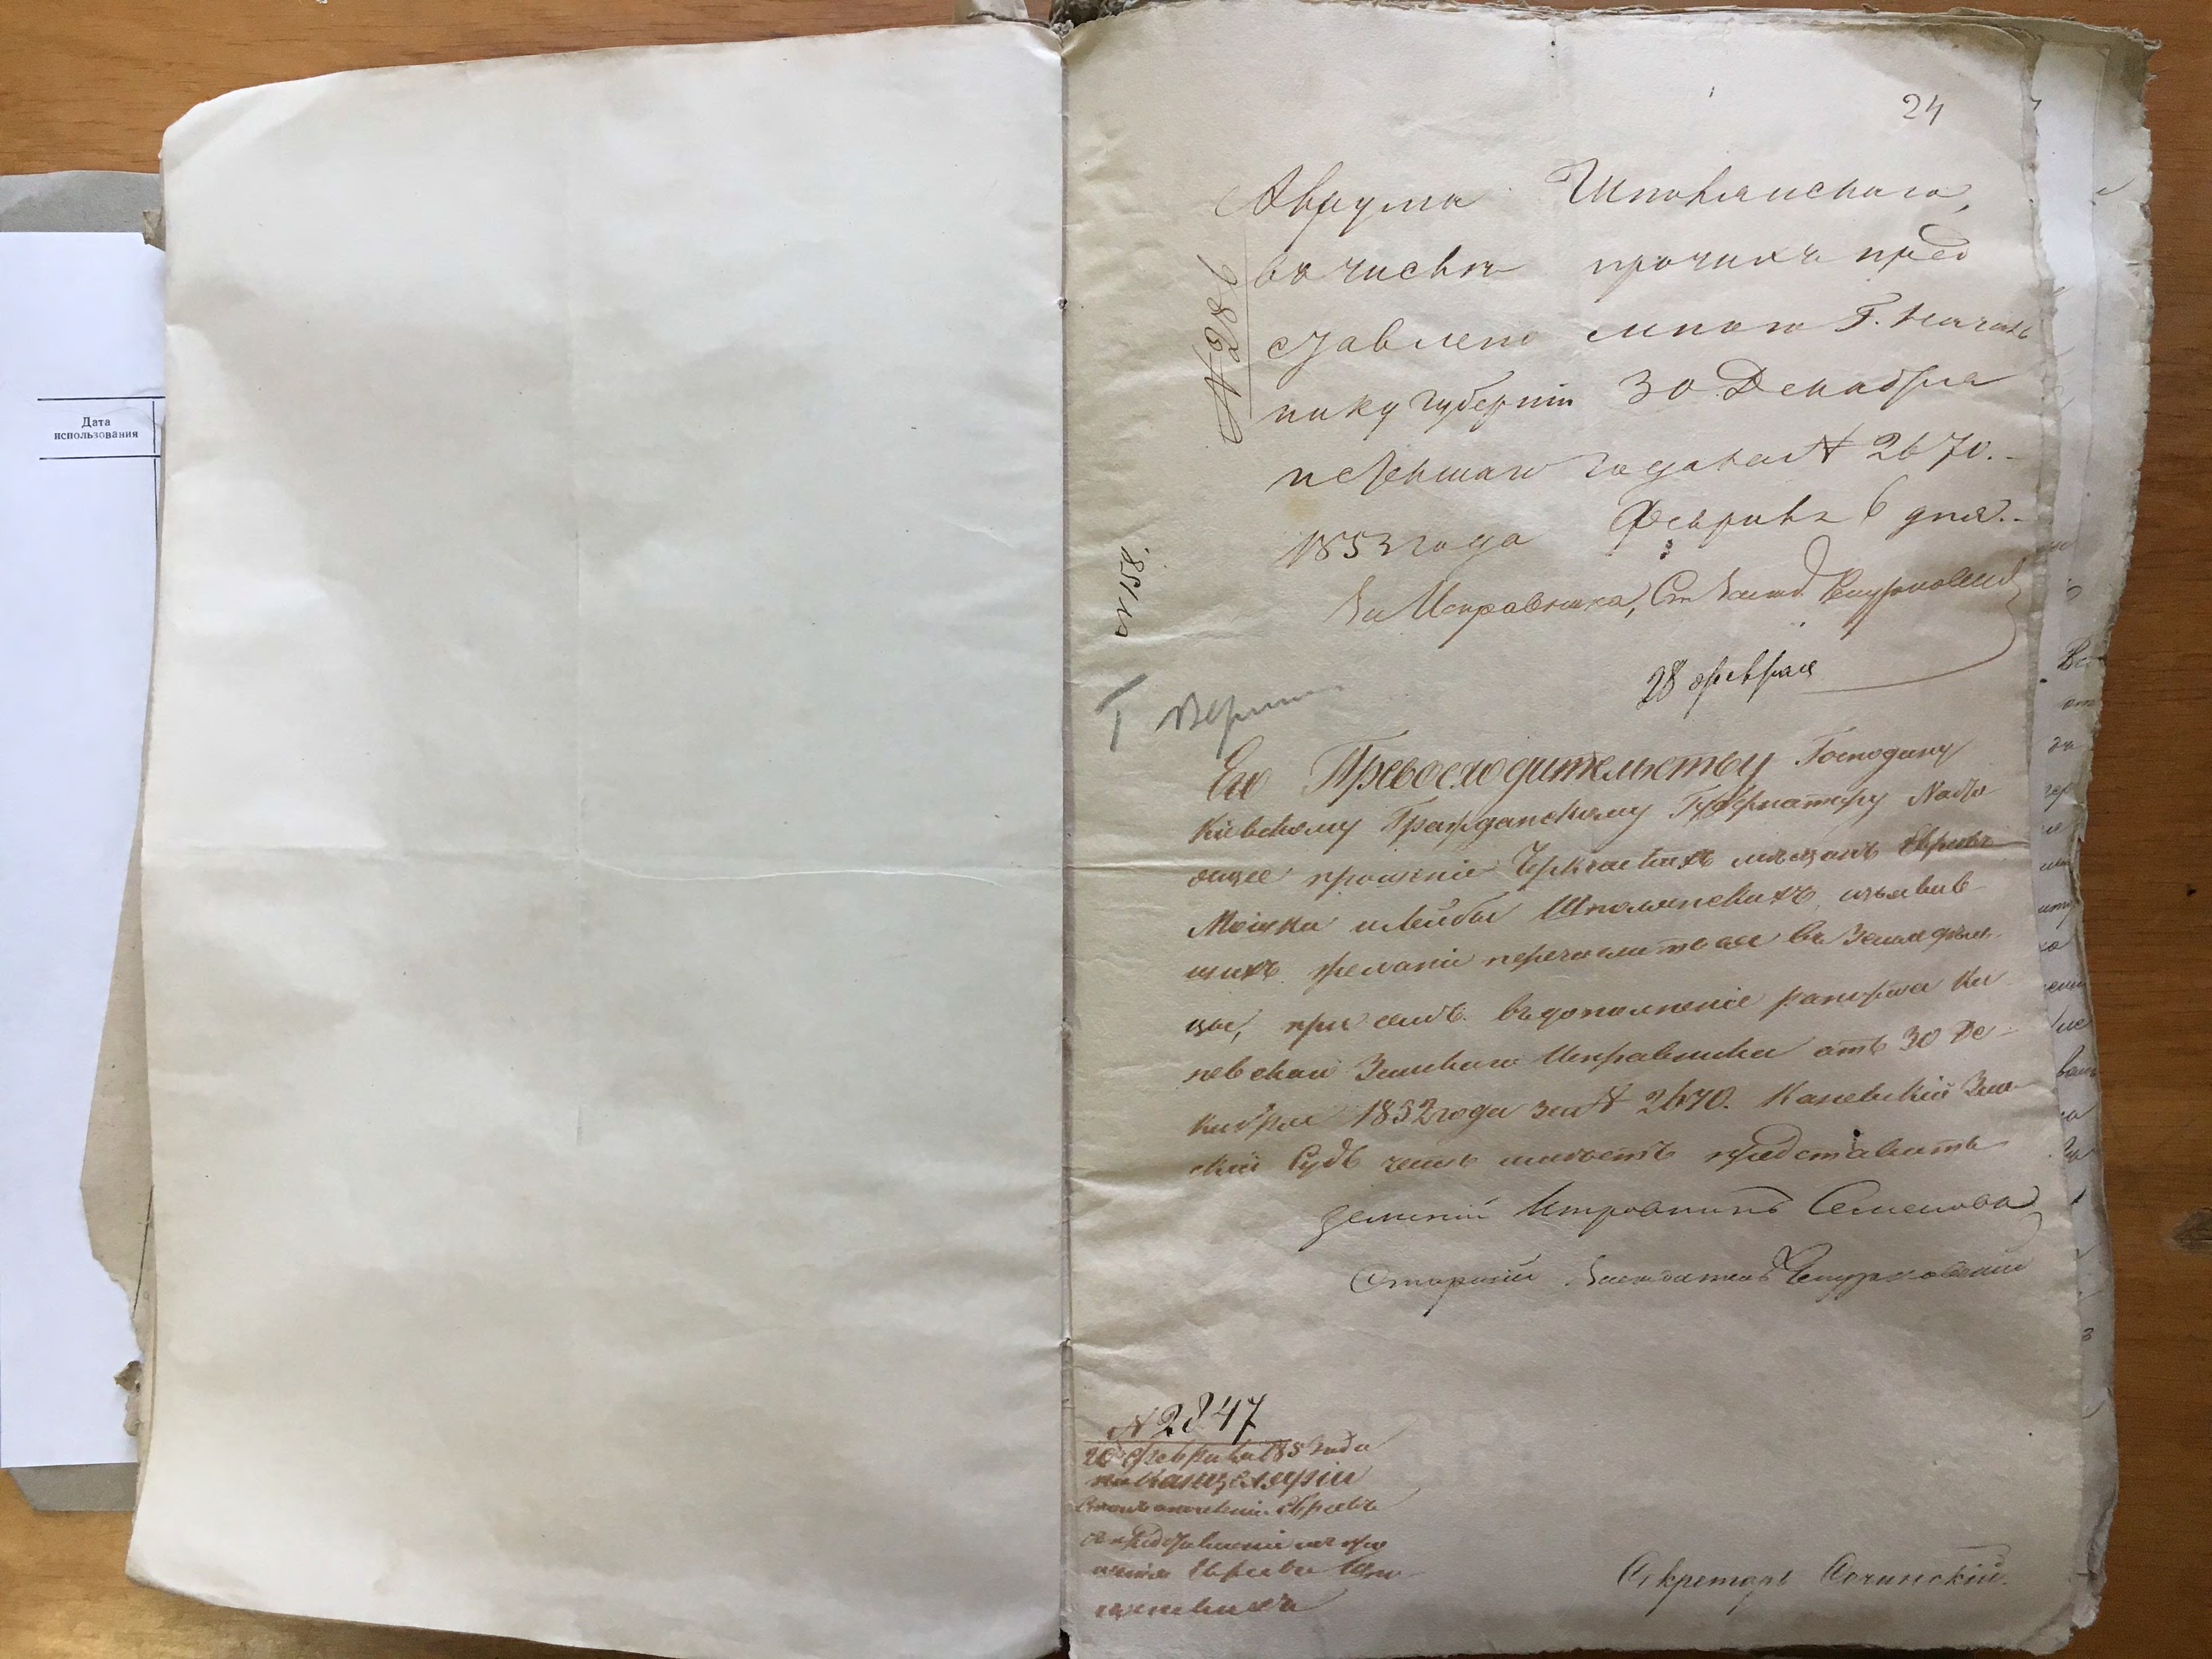 Дата
использования
24
Аврума Шполянского,
въ числѣ прочихъ пред
ставлено мною Г. Началь
нику Губерніи 30 Декабря
истекшаго года за № 2670.
1853 года Февраля 6 дня.
За Исправника, Ст. Засѣд.
№ 286
№ 158.
28 февраля
Его Превосходительству Господину
Кіевскому Гражданскому Губернатору
прошеніе Черкасскихъ мѣщанъ Евреевъ
Мошки и Лейбы Шполянскихъ, изъявив
шихъ желаніе перечислиться въ Земледѣль
цы, при семъ въ дополненіе рапорта Ка
невскаго Земскаго Исправника отъ 30 Де
кабря 1852 года за № 2670. Каневскій Зем
скій Судъ честь имѣетъ представить
Земскій Исправникъ Семенова
Старшій Засѣдатель
№ 2847
февраля 185 года
по Канцеляріи
Евреевъ
представленіи
Секретарь